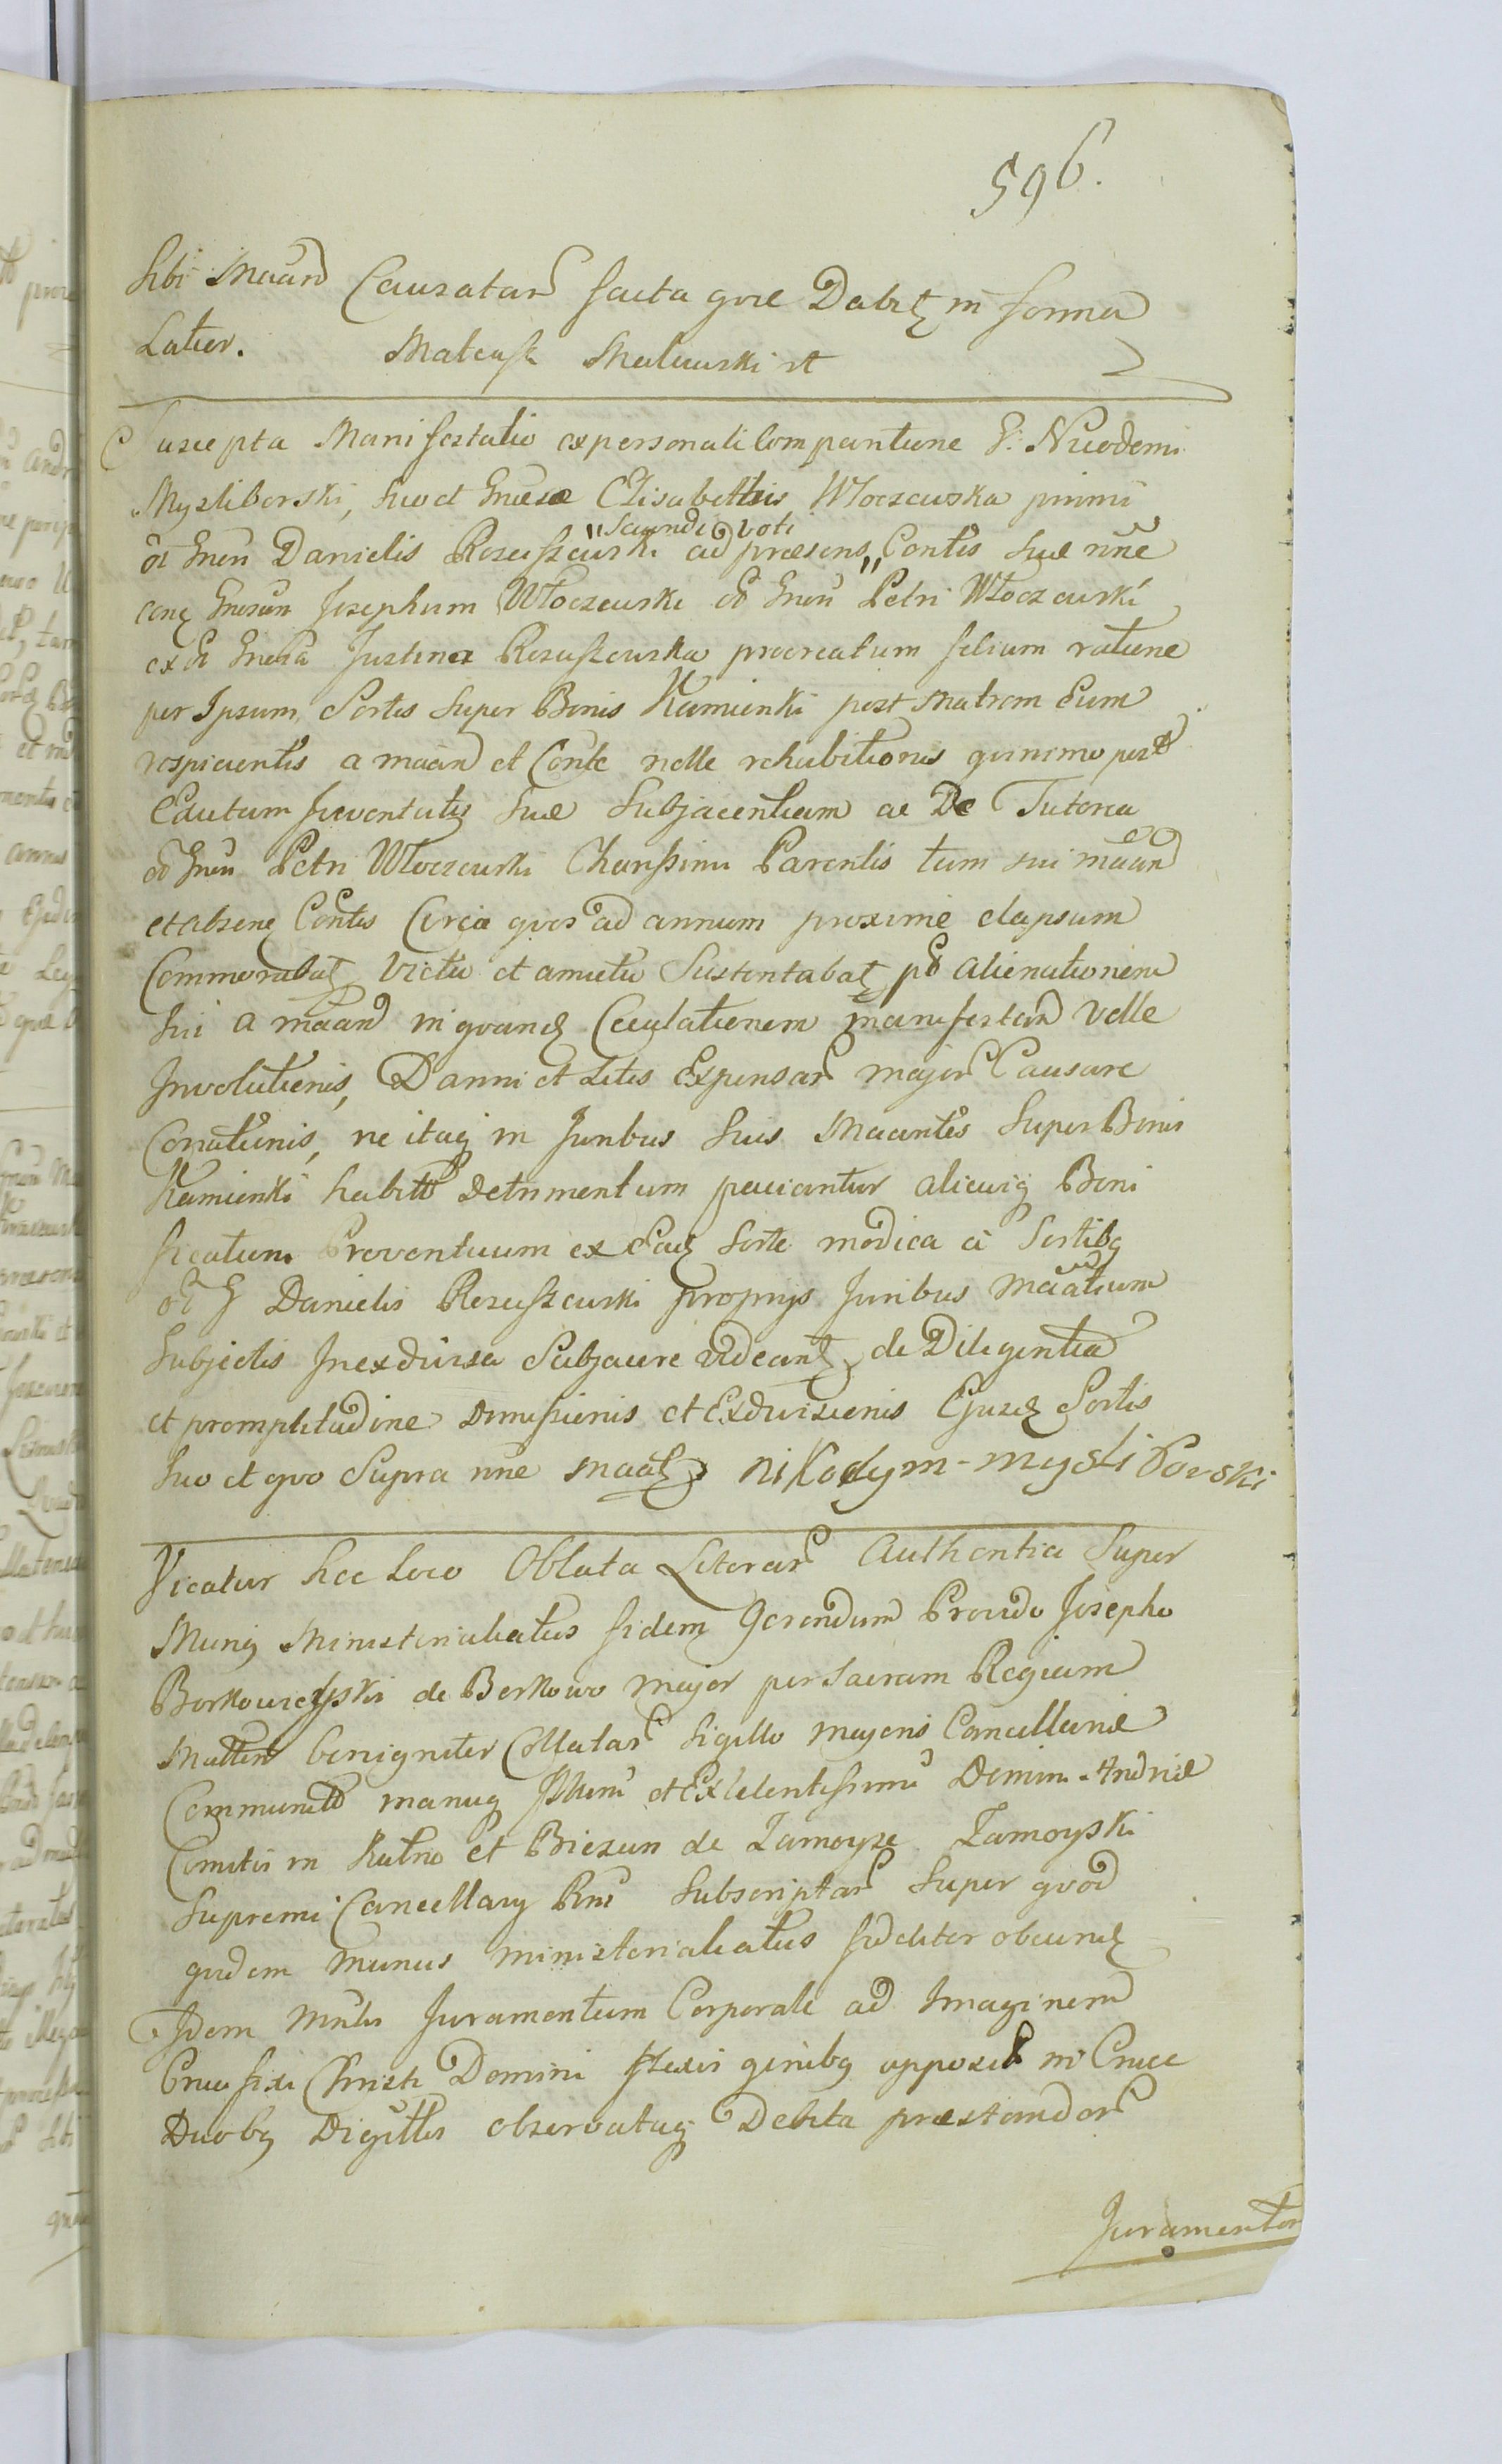 596.
Sibi Maand Causatar facta gvre Dabitz in forma
Latior. Mateusz Maluwski st
Suscepta Manifestatio ex personali Comparitione G: Nicodemi
Mysliborski, suo et Gnesae Elisabethis Wloczewska primi
"Secundi voti
ol Gnen Danielis Rozuszewski ad praesens" Contis suae nne
conz Gnesum Josephum Włoczewski ol Gnen Petri Włoczewski
ex ol Gnesa Justina Rozuszewska procreatum filium ratione
per Ipsum Sortis Super Bonis Kamienki post Matrem Eum
respicientis a maand et Conte nolle rehibitionis qvinimo post
Edutam Juventutis suae Subjacentiam ac De Tutorea
ol Gnen Petri Włoczewski Charissimi Parentis tum sui maand
et absenz Contis Circa qvos ad annum proxime elapsum
Commorabatz victu et amictu Sustentabatz pd alienationem
sui a maand in qvandz Caulationem manifestand velle
Involutionis, Damni et Litis Expensar major Causare
Conationis, ne itaq in Juribus suis Maantes Super Bonis
Kamienki habitt Detrimentum paciantur alicuiq Boni
ficatum Proventuum ex Eadz sorte modica a Sortibq
ol G Danielis Rozuszewski proprijs Juribus maatium
Subjectis Inexdivisa Subjacere videantz, de Diligentia
et promptitudine Dimissionis et Exdivisionis Ejusdz Sortis
suo et qvo Supra nne maatz Nikodym-mysliborski
Vicatur hoc Loco Oblata Literar Authentica Super
Munq Ministerialatus fidem Gerendum Provido Josepho
Borkowski de Borkowo major per Sacram Regiam
Mattem benigniter Collatar Sigillo majoris Cancellariae
Communitt manuq Illmi et Excelentissimi Domini Andreae
Comitis in Kutno et Biezun de Zamoysc Zamoyski
Supremi Cancellary Rni Subscriptar Super qvod
qvidem munus ministerialatus fideliter obeundz
Idem Mnlis Juramentum Corporale ad Imaginem
Crucifixi Christi Domini flexis genibq apposit in Cruce
Duobq Digittis observatuq Debita praestandor
Juramentor